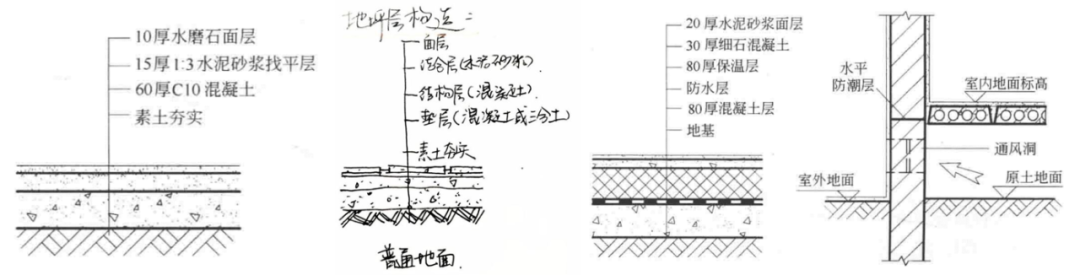 10厚水磨石面层
15厚1:3水泥砂浆找平层
60厚C10混凝土
素土夯实
地坪层构造:
面层
结合层(水泥砂浆)
结构层(混凝土)
垫层(混凝土或三合土)
素土夯实
普通地面
20厚水泥砂浆面层
30厚细石混凝土
80厚保温层
防水层
80厚混凝土层
地基
水平
防潮层
室内地面标高
通风洞
室外地面
原土地面